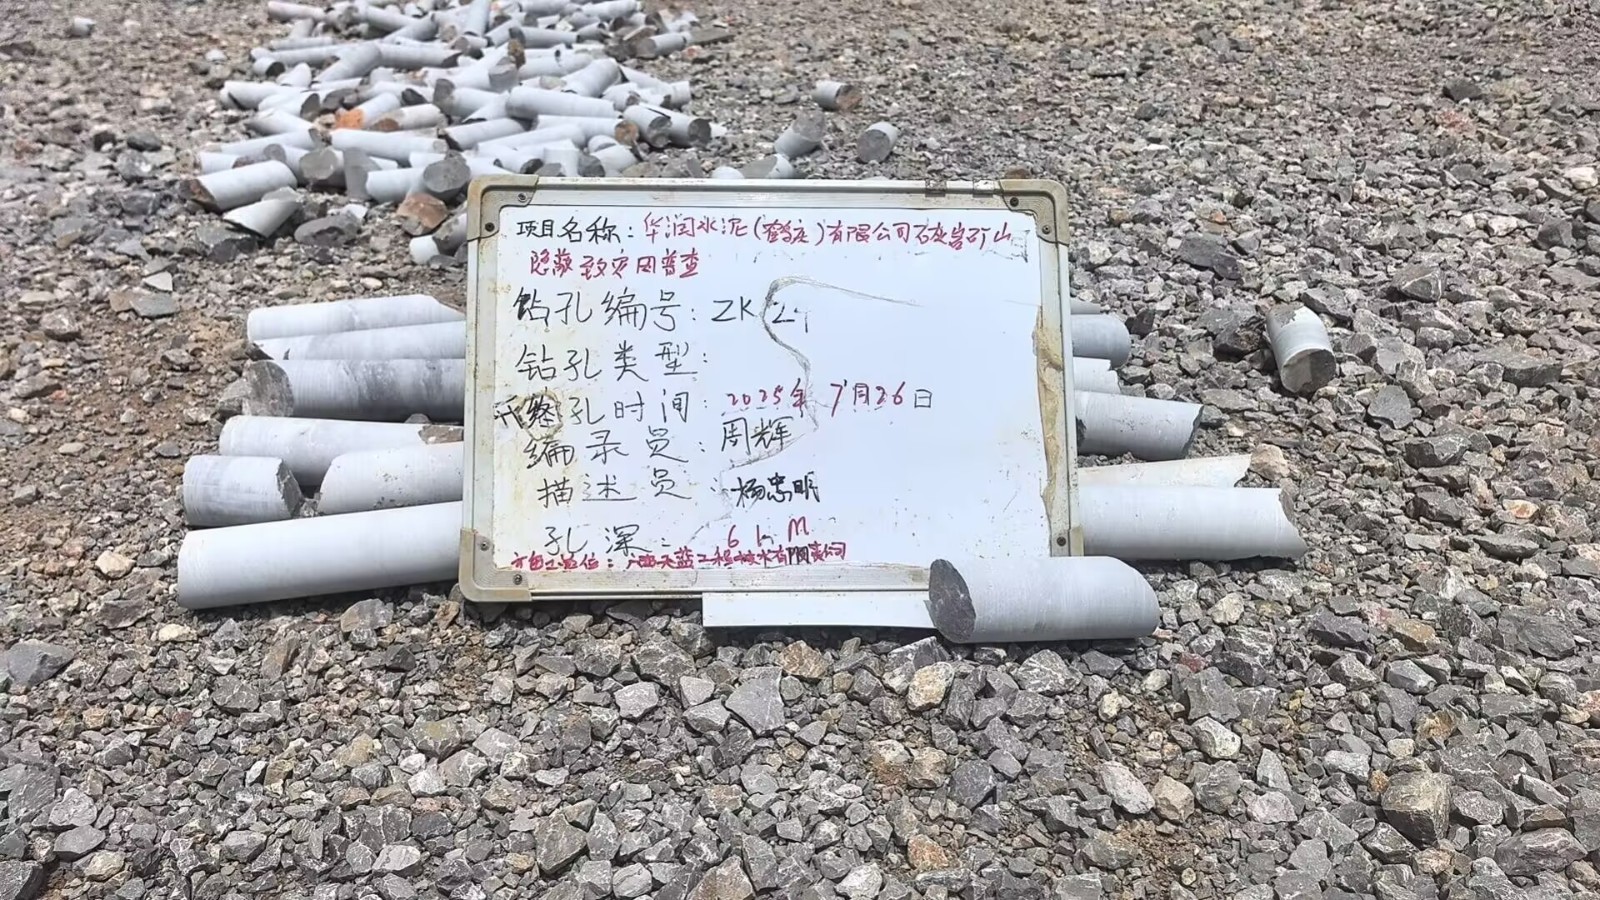 项目名称：华润水泥(鹤庆)有限公司石灰岩矿山
隐蔽致灾因普查
钻孔编号：ZK
钻孔类型：
终孔时间：2025年 7月26日
编录员：周辉
描述员：杨忠明
孔深： 6 M
单位：天蓝工程技术有限责任公司